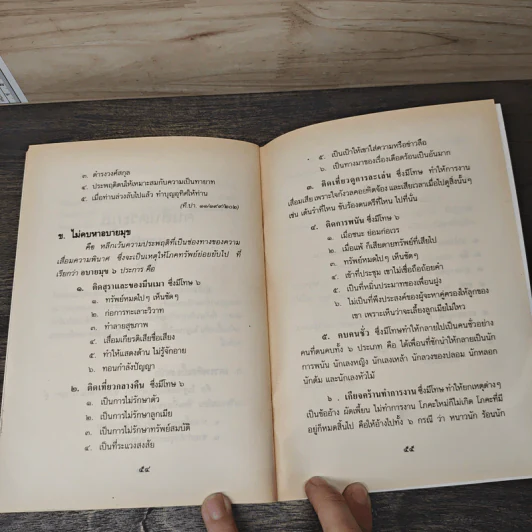 ๓. ดำรงวงศ์สกุล
๔. ประพฤติตนให้เหมาะสมกับความเป็นทายาท
๕. เมื่อท่านล่วงลับไปแล้ว ทำบุญอุทิศให้ท่าน
(ที.ปา. ๑๑/๑๙๙/๒๐๒)
ข. ไม่คบหาอบายมุข
คือ หลีกเว้นความประพฤติที่เป็นช่องทางของความ
เสื่อมความพินาศ ซึ่งจะเป็นเหตุให้โภคทรัพย์ย่อยยับไป ที่
เรียกว่า อบายมุข ๖ ประการ คือ
๑. ติดสุราและของมึนเมา ซึ่งมีโทษ ๖
๑. ทรัพย์หมดไปๆ เห็นชัดๆ
๒. ก่อการทะเลาะวิวาท
๓. ทำลายสุขภาพ
๔. เสื่อมเกียรติเสียชื่อเสียง
๕. ทำให้แสดงด้าน ไม่รู้จักอาย
๖. ทอนกำลังปัญญา
๒. ติดเที่ยวกลางคืน ซึ่งมีโทษ ๖
๑. เป็นการไม่รักษาตัว
๒. เป็นการไม่รักษาลูกเมีย
๓. เป็นการไม่รักษาทรัพย์สมบัติ
๔. เป็นที่ระแวงสงสัย
๕๔
๕. เป็นเป้าให้เขาใส่ความหรือข่าวลือ
๖. เป็นทางมาของเรื่องเดือดร้อนเป็นอันมาก
๓. ติดเที่ยวดูการละเล่น ซึ่งมีโทษ ทำให้การงาน
เสื่อมเสีย เพราะใจกังวลคอยคิดจ้อง และเสียเวลาเมื่อไปดูสิ่งนั้นๆ
เช่น เต้นรำที่ไหน ขับร้องดนตรีที่ไหน ไปที่นั่น
๔. ติดการพนัน ซึ่งมีโทษ ๖
๑. เมื่อชนะ ย่อมก่อเวร
๒. เมื่อแพ้ ก็เสียดายทรัพย์ที่เสียไป
๓. ทรัพย์หมดไปๆ เห็นชัดๆ
๔. เข้าที่ประชุม เขาไม่เชื่อถือถ้อยคำ
๕. เป็นที่หมิ่นประมาทของเพื่อนฝูง
๖. ไม่เป็นที่พึงประสงค์ของผู้จะหาคู่ครองให้ลูกของ
เขา เพราะเห็นว่าจะเลี้ยงลูกเมียไม่ไหว
๕. คบคนชั่ว ซึ่งมีโทษทำให้กลายไปเป็นคนชั่วอย่าง
คนที่ตนคบทั้ง ๖ ประเภท คือ ได้เพื่อนที่ชักนำให้กลายเป็นนัก
การพนัน นักเลงหญิง นักเลงเหล้า นักลวงของปลอม นักหลอก
นักต้ม และนักเลงหัวไม้
๖. เกียจคร้านทำการงาน ซึ่งมีโทษ ทำให้ยกเหตุต่างๆ
เป็นข้ออ้าง ผัดเพี้ยน ไม่ทำการงาน โภคะใหม่ก็ไม่เกิด โภคะที่มี
อยู่ก็หมดสิ้นไป คือให้อ้างไปทั้ง ๖ กรณี ว่า หนาวนัก ร้อนนัก
๕๕